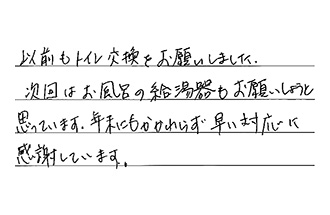 以前もトイレ交換をお願いしました.
次回はお風呂の給湯器もお願いしようと
思っています.年末にもかかわらず早い対応に
感謝しています。